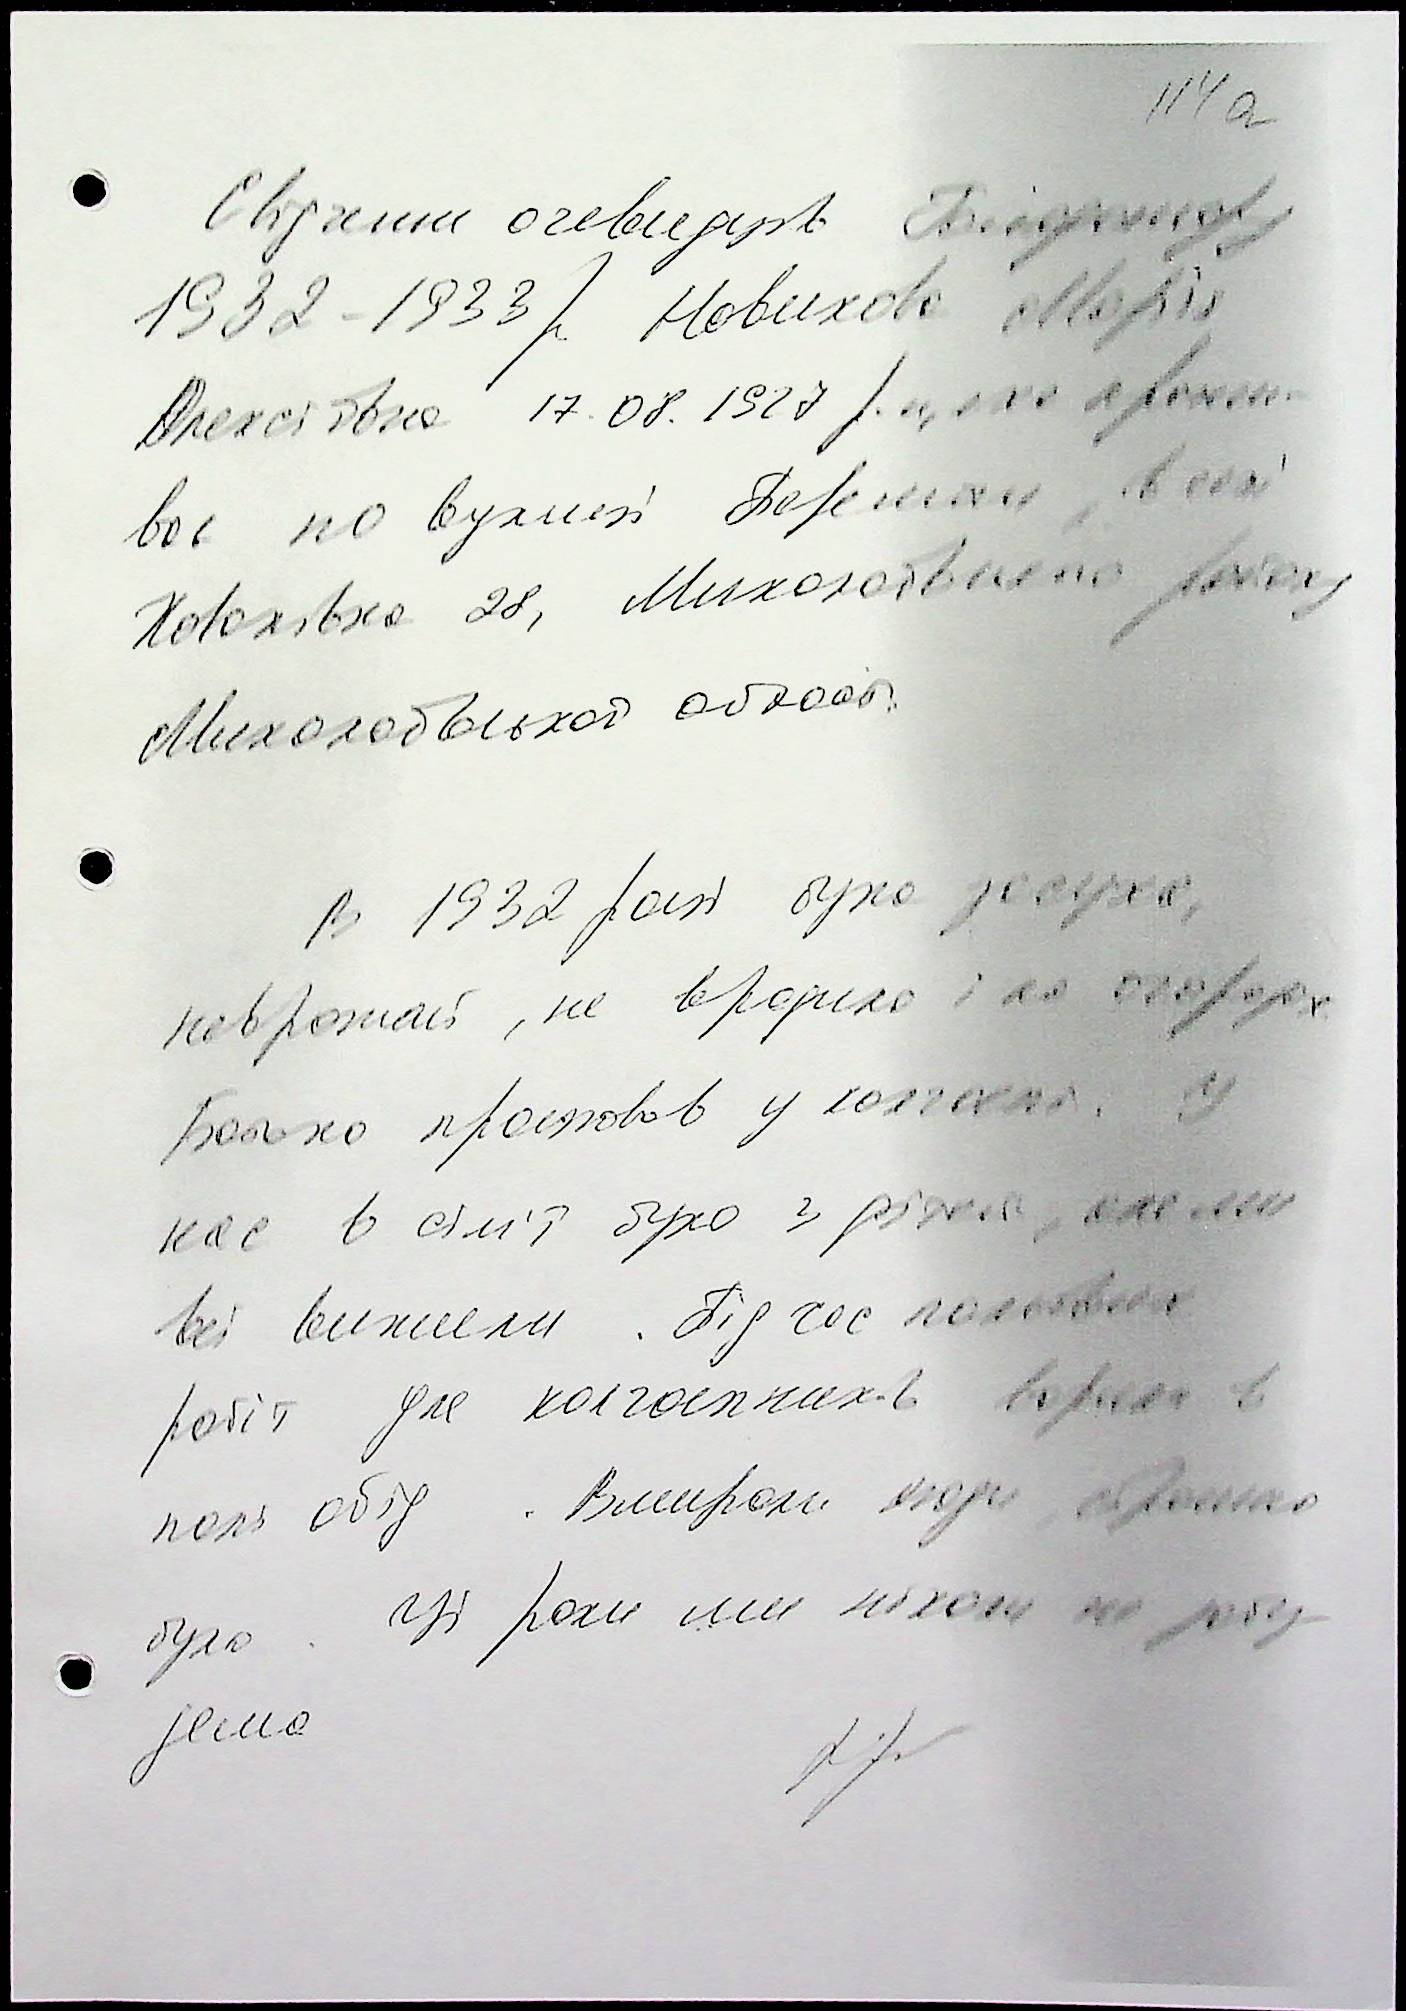 114а
Свідчення очевидців Голодомору
1932-1933 р. Новикова Марія
Олексіївна 17.08.1927 р.н, яка прожи-
ває по вулиці , в селі
Ковалівка 28, Миколаївського району
Миколаївської області.
В 1932 році була засуха,
неврожай, не вродило і на огородах.
Батько працював у колгоспі. У
нас в сім'ї було 3 дітей, але ми
всі вижили. Під час польових
робіт для колгоспників варили в
полі обід. Вмирали люди, страшно
було. Ці роки ми ніколи не забу-
демо